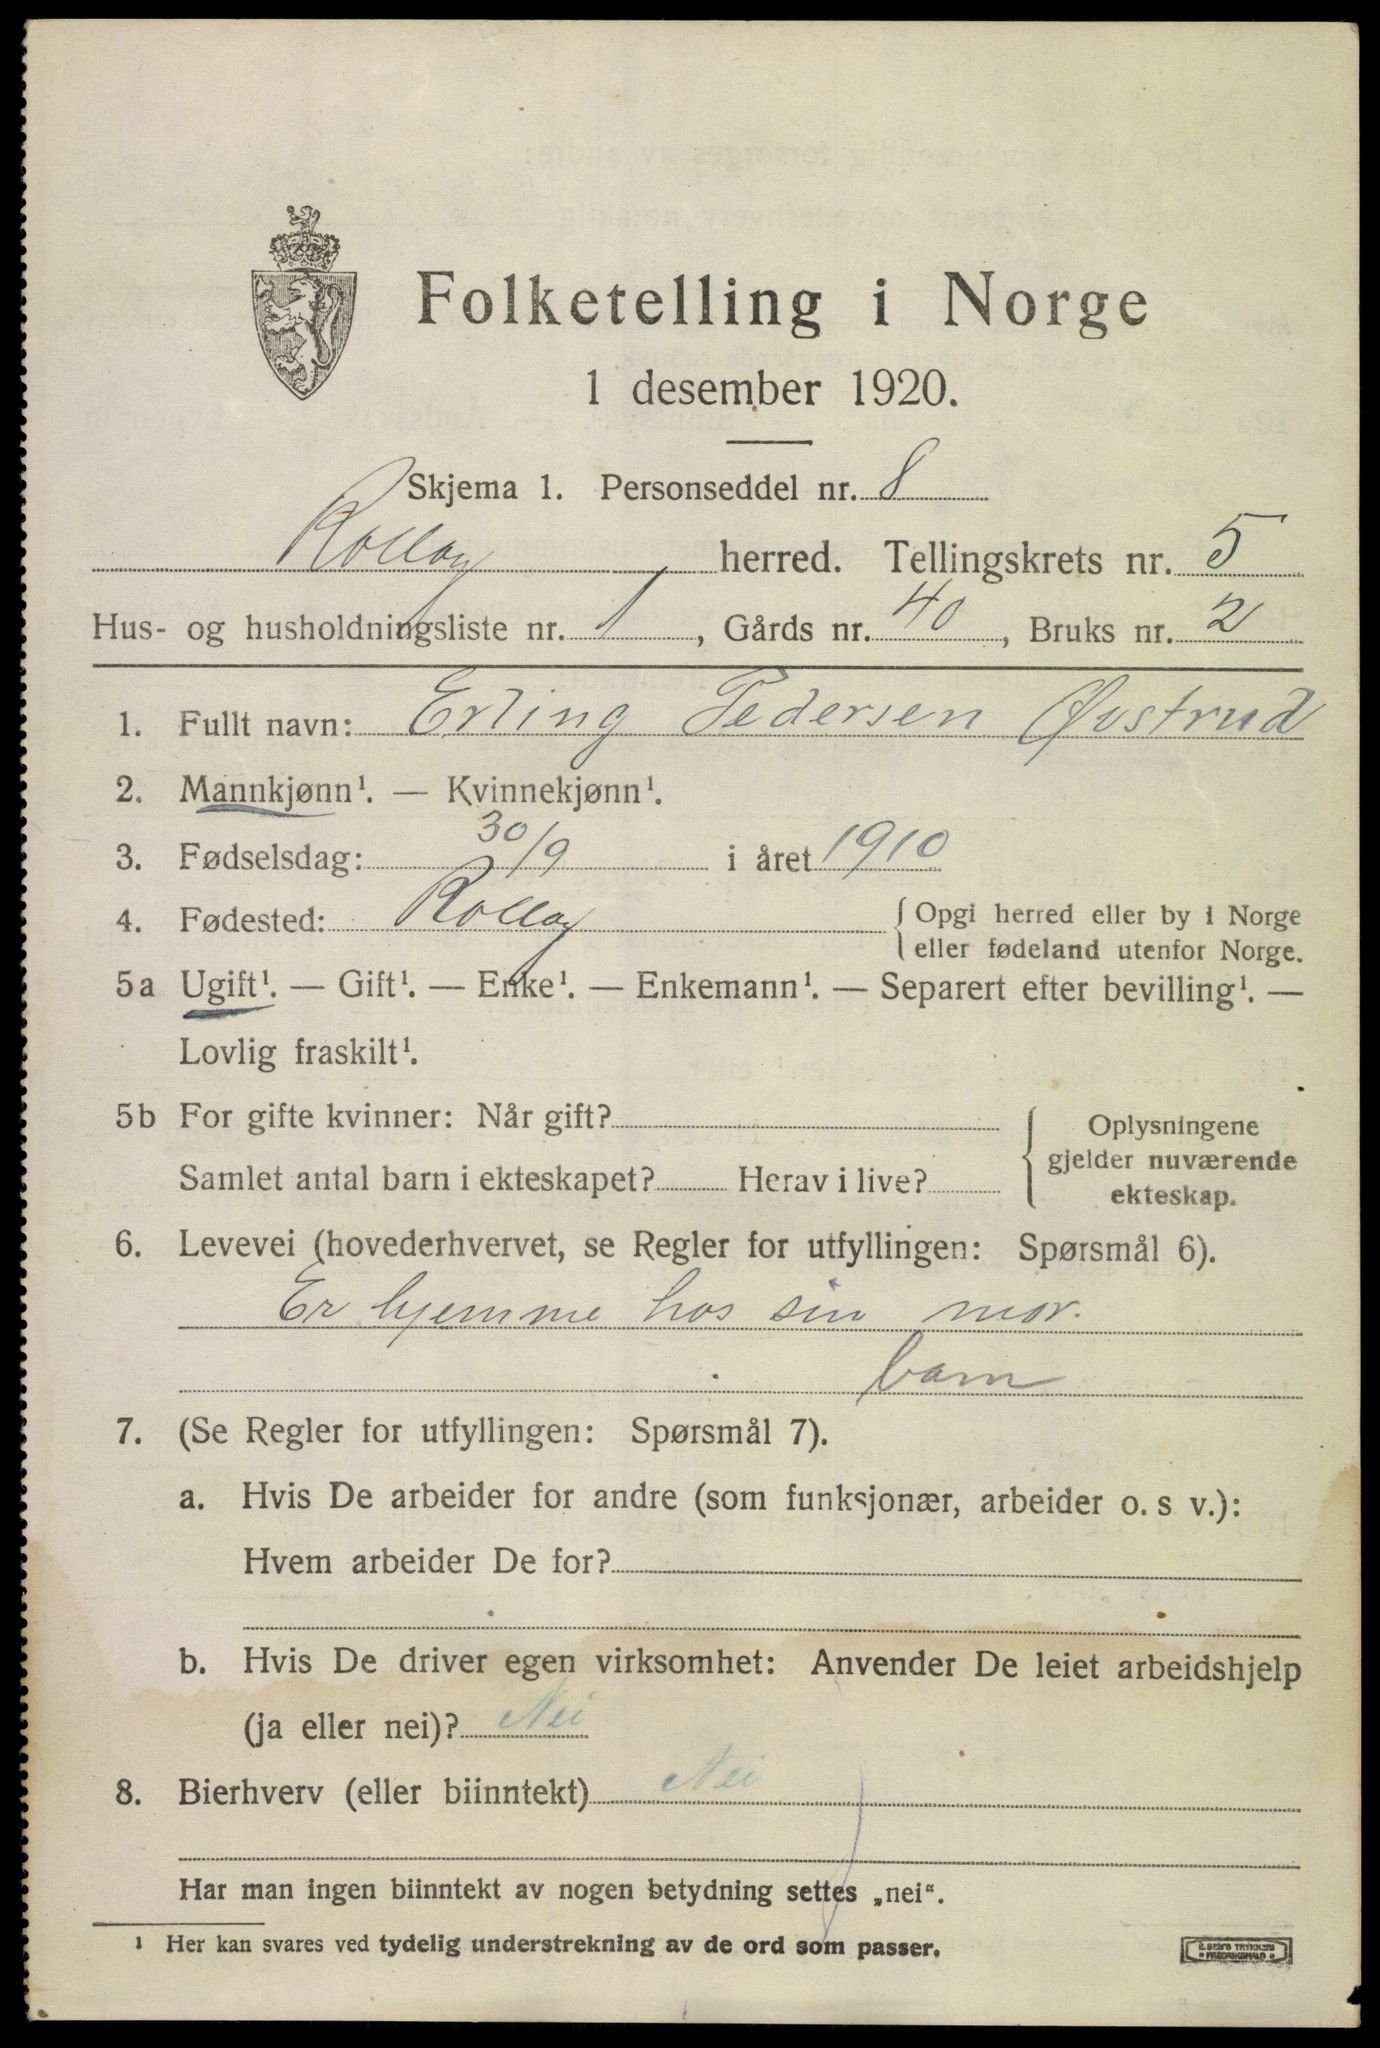 Folketelling i Norge
1 desember 1920.
Skjema 1. Personseddel nr. 8
Rollag herred. Tellingskrets nr. 5
Hus- og husholdningsliste nr. 1, Gårds nr. 40, Bruks nr. 2
1. Fullt navn: Erling Pedersen Øvstrud
2. Mannkjønn¹. — Kvinnekjønn¹.
3. Fødselsdag: 30/9 i året 1910
4. Fødested: Rollag { Opgi herred eller by i Norge
eller fødeland utenfor Norge.
5a Ugift¹. — Gift¹. — Enke¹. — Enkemann¹. — Separert efter bevilling¹. —
Lovlig fraskilt¹.
5b For gifte kvinner: Når gift? { Oplysningene
gjelder nuværende
Samlet antal barn i ekteskapet? Herav i live? ekteskap.
6. Levevei (hovederhvervet, se Regler for utfyllingen: Spørsmål 6).
Er hjemme hos sin mor.
barn
7. (Se Regler for utfyllingen: Spørsmål 7).
a. Hvis De arbeider for andre (som funksjonær, arbeider o. s v.):
Hvem arbeider De for?
b. Hvis De driver egen virksomhet: Anvender De leiet arbeidshjelp
(ja eller nei)? Nei
8. Bierhverv (eller biinntekt) Nei
Har man ingen biinntekt av nogen betydning settes „nei“.
¹ Her kan svares ved tydelig understrekning av de ord som passer.